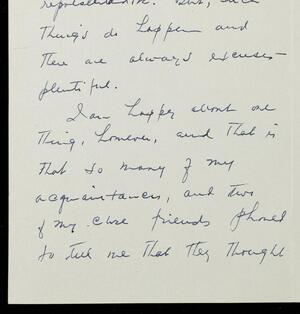 representative. But, such
things do happen and
there are always excuses
plentiful.
I am happy about one
thing, however, and that is
that so many of my
acquaintances, and two
of my close friends phoned
to tell me that they thought